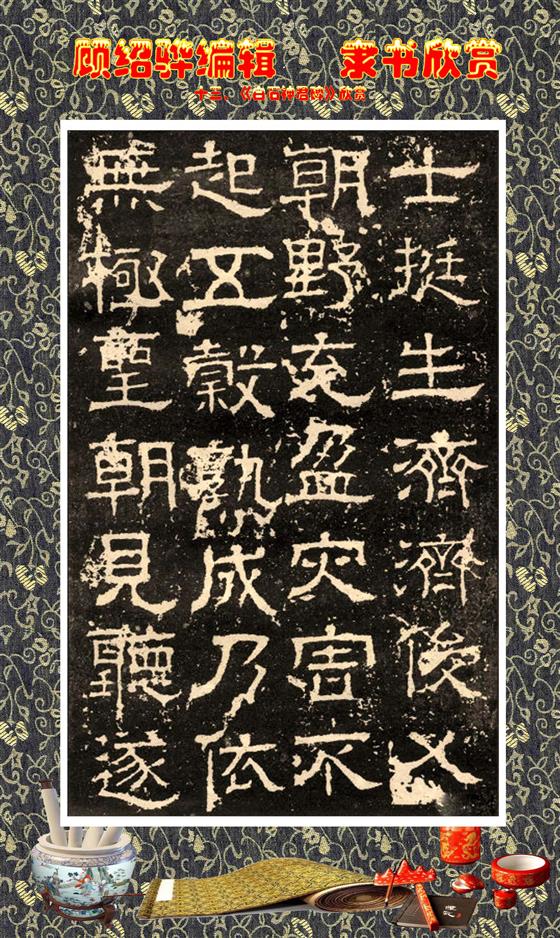 顾绍骅编辑 隶书欣赏
十三、《白石神君碑》欣赏
士挺生濟濟俊乂
朝野充盈灾害不
起五穀熟成乃依
無極聖朝見聽遂